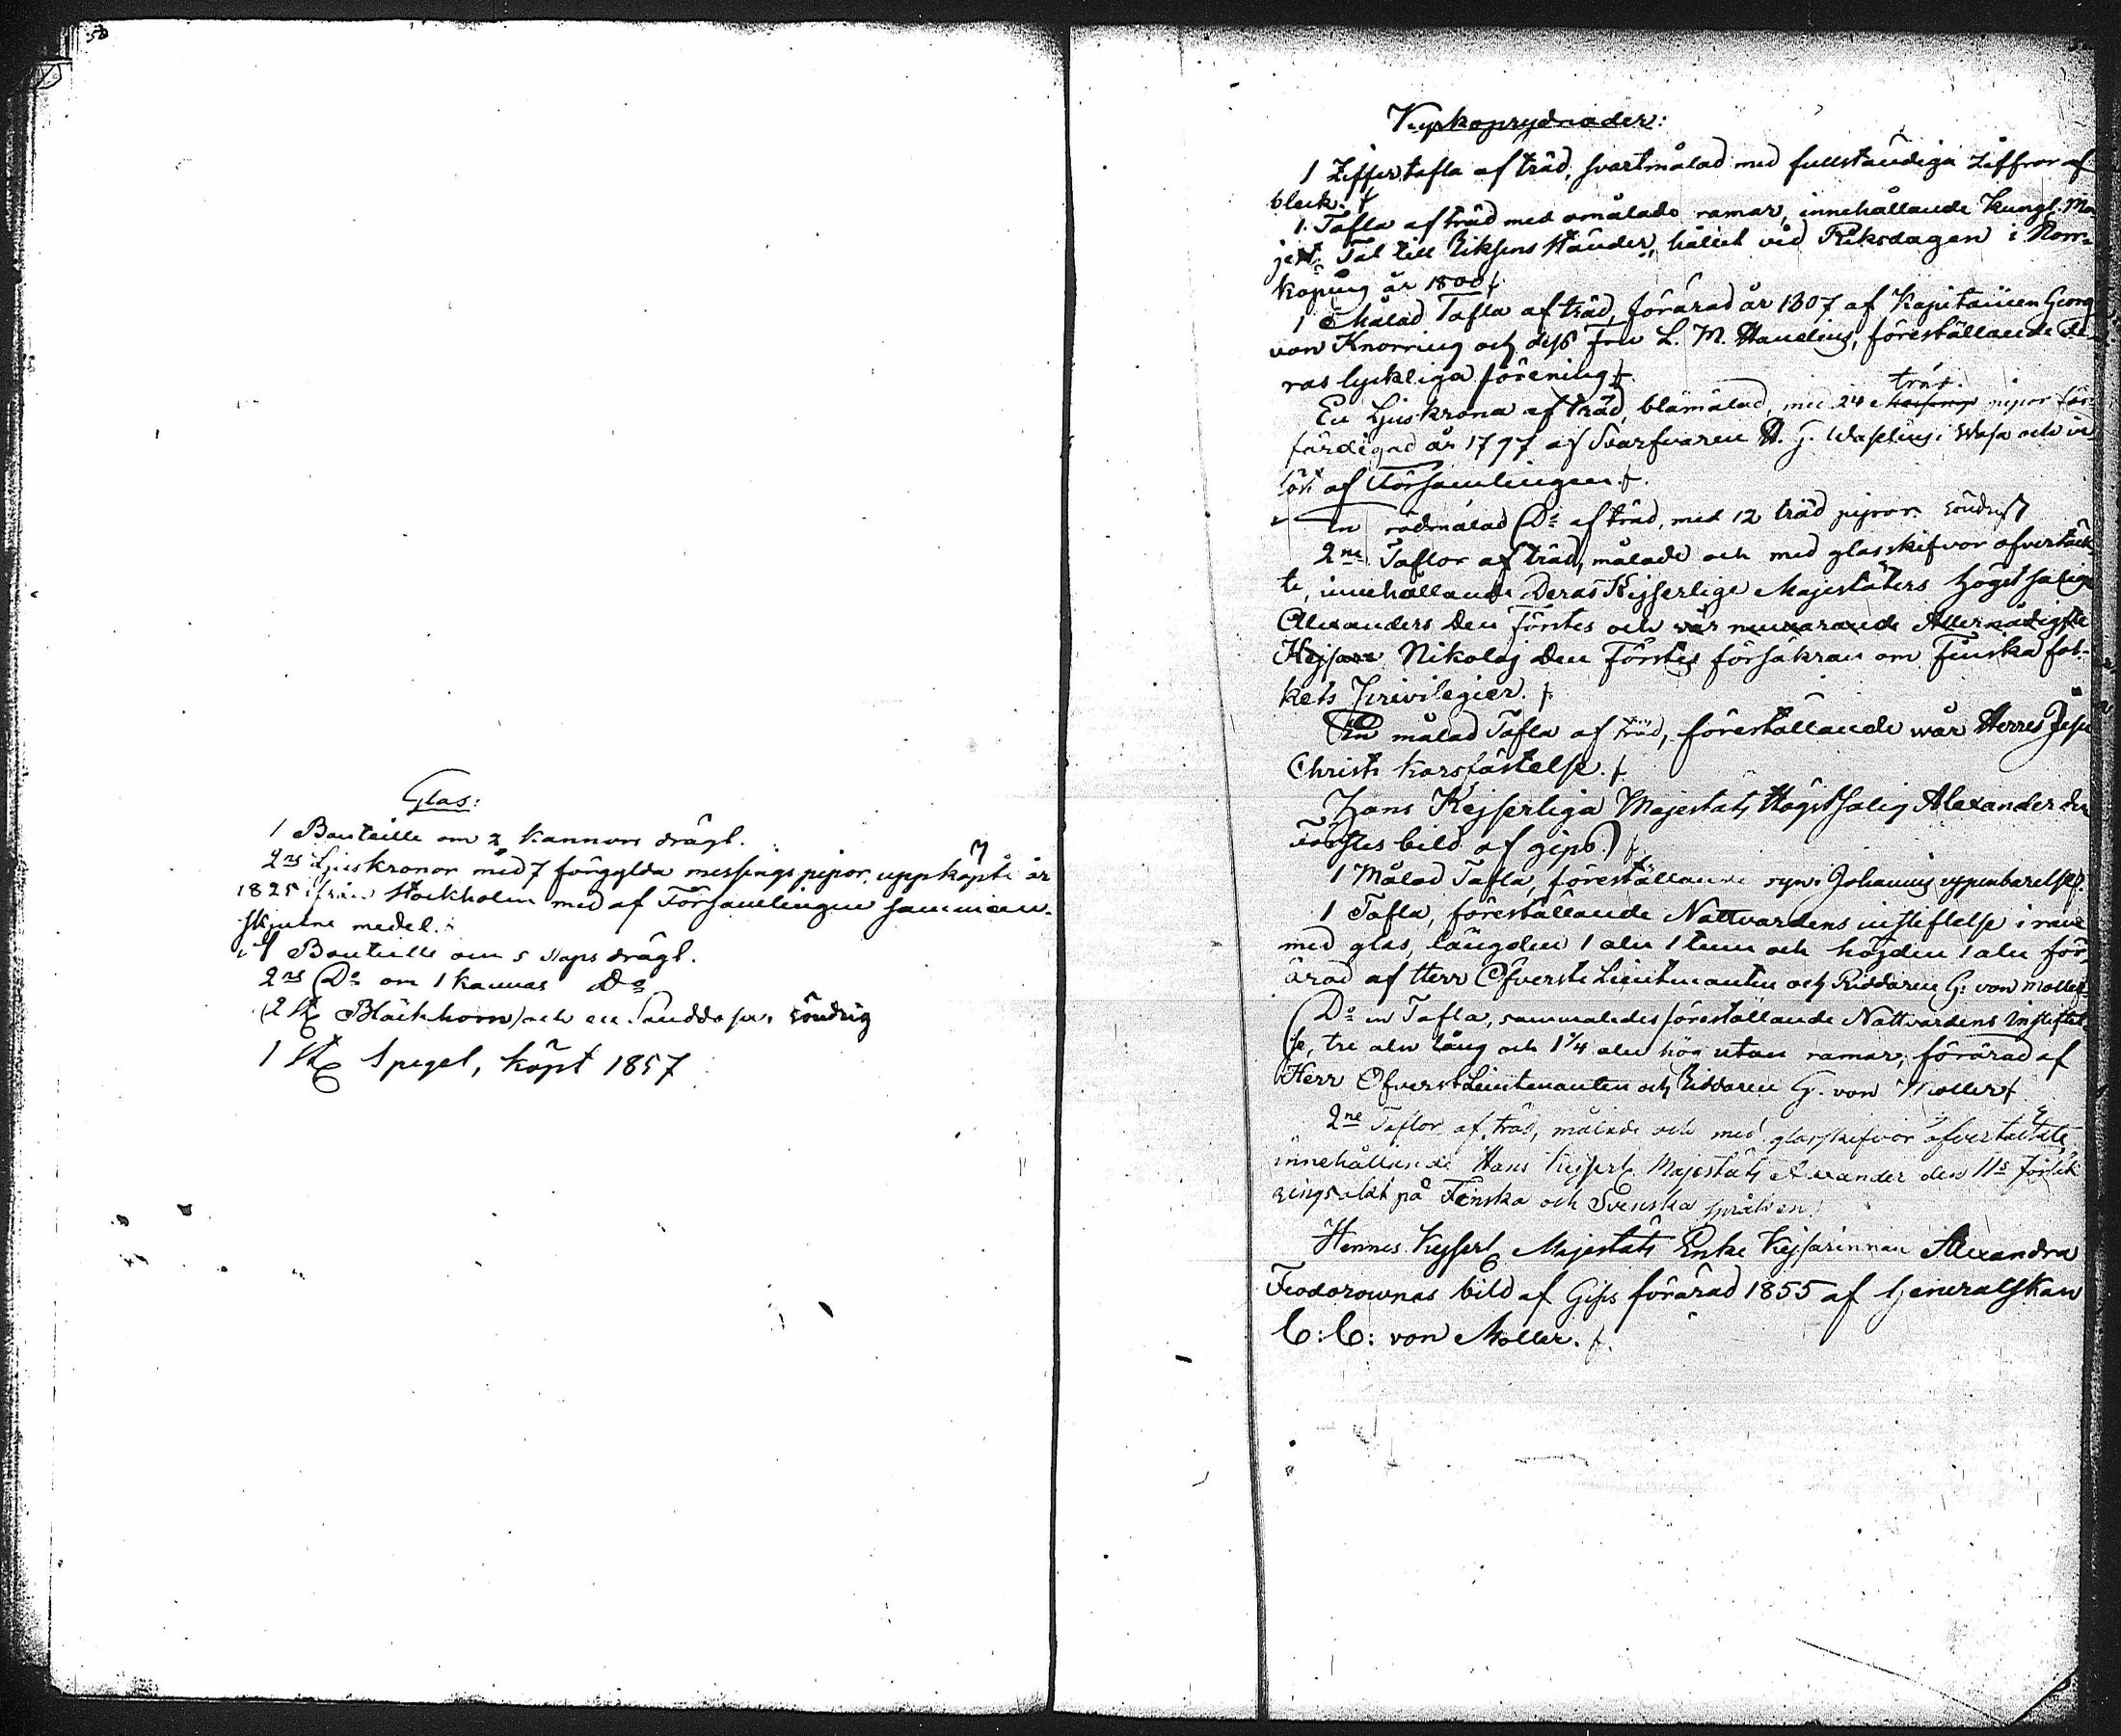 50
Glas:
1 Bouteille om 2 kannors drägt.
2ne Ljuskronor med 7 förgylda messings pipor, uppköpte år
1825 ifrån Stockholm med af Församlingen samman-
skjutne medel.
1 Bouteille om 5 stops drägt.
2ne Do om 1 kannas Do
2 St Bläckhorn och en Sanddosa, söndrig
1 St Spegel, köpt 1857
Kyrkoprydnader:
1 Ziffertafla af träd, svartmålad med fullständiga Ziffror af
bleck.
1 Tafla af träd med omålade ramar, innehållande Kungl. Ma
jest. Tal till Riksens Ständer, hållit vid Riksdagen i Norr-
köping år 1800
1 Målad Tafla af träd, förärad år 1807 af Kapitainen Georg
von Knorring och dess Fru L. M. Handling, föreställande de
ras lyckliga förening
träd.
En Ljuskrona af träd, blåmålad, med 24 messings pipor för
färdigad år 1797 af Svarfvaren A. G. Waselius i Wasa och in
löst af Församlingen
En rödmålad Do af träd, med 12 träd pipor. söndrig
2ne Taflor af träd, målade och med glasskifvor öfvertäck
te, innehållande Deras Kejserlige Majestäters Högstsalige
Alexanders Den Förstes och vår nuvarande Allernådigste
Kejsare Nikolaj Den Förstes försäkran om Finska fol-
kets Privilegier.
En målad Tafla af träd, föreställande wår Herres Jesu
Christi Korsfästelse.
Hans Kejserliga Majestäts Högstsalig Alexander den
Förstes bild af gips.
1 Målad Tafla, föreställande syn. Johannis uppenbarelse
1 Tafla, föreställande Nattvardens instiftelse i ram
med glas, längden 1 aln 1 tum och höjden 1 aln för-
ärad af Herr Öfverste Lieutnanten och Riddaren G: von Moller
Do en Tafla, sammaledes föreställande Nattvardens Instiftel-
se, tre aln lång och 1 1/4 aln hög utan ramar, förärad af
Herr Öfverst Lieutenanten och Riddaren G. von Moller
2ne Taflor af träd, målade och med glasskifvor öfvertäckte
innehållande Hans Kejserl. Majestäts Alexander den IIs försäk
ringsakt på Finska och Svenska språken
Hennes Kejserl. Majestäts Enke Kejsarinnan Alexandra
Feodorownas bild af Gips förärad 1855 af Generalskan
C: C: von Moller.